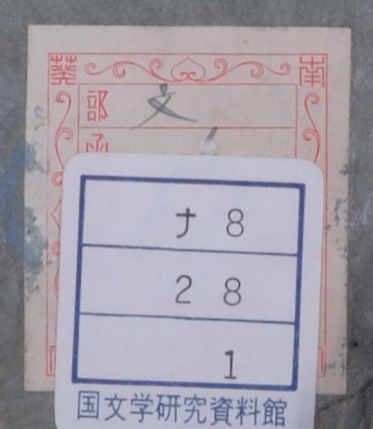 南葵
部 文
函
ナ 8
2 8
1
国文学研究資料館